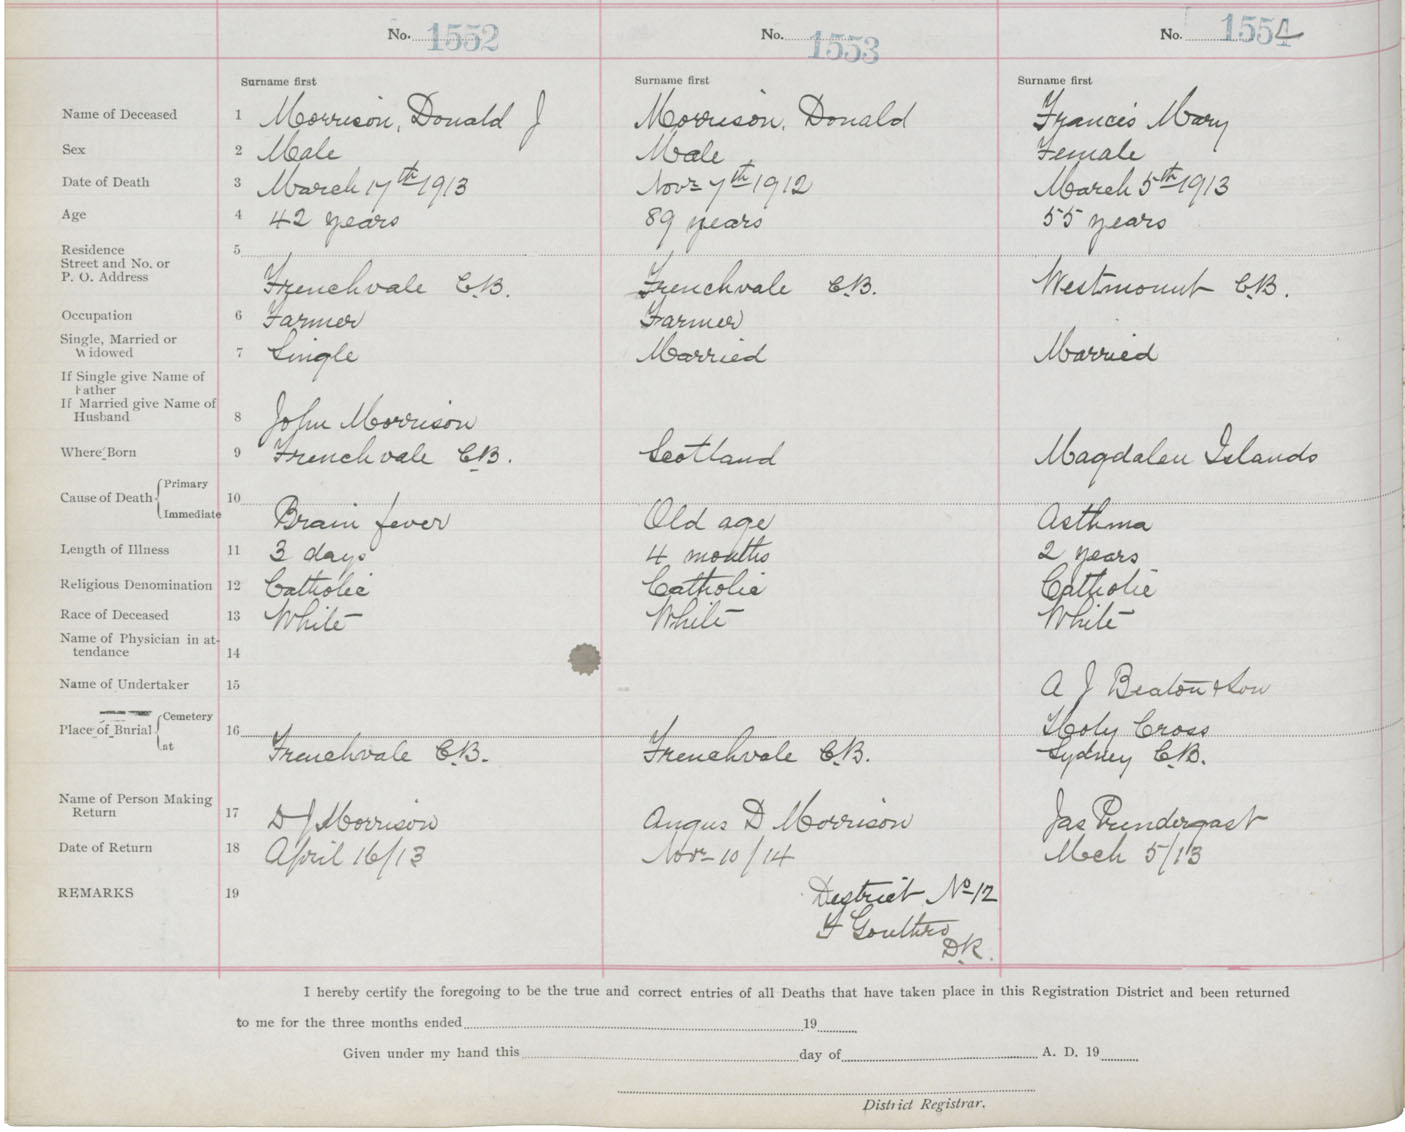 No. 1552 No. 1553 No. 1554
Surname first Surname first Surname first
Name of Deceased 1 Morrison, Donald J Morrison, Donald Francis Mary
Sex 2 Male Male Female
Date of Death 3 March 17th 1913 Novr 7th 1912 March 5th 1913
Age 4 42 years 89 years 55 years
Residence 5
Street and No. or
P. O. Address Frenchvale C.B. Frenchvale C.B. Westmount C.B.
Occupation 6 Farmer Farmer
Single, Married or
Widowed 7 Single Married Married
If Single give Name of
Father
If Married give Name of
Husband 8 John Morrison
Where Born 9 Frenchvale C.B. Scotland Magdalen Islands
Cause of Death Primary 10
Immediate Brain fever Old age Asthma
Length of Illness 11 3 days 4 months 2 years
Religious Denomination 12 Catholic Catholic Catholic
Race of Deceased 13 White White White
Name of Physician in at-
tendance 14
Name of Undertaker 15 A J Beaton & Son
Place of Burial Cemetery 16 Holy Cross
at Frenchvale C.B. Frenchvale C.B. Sydney C.B.
Name of Person Making
Return 17 D J Morrison Angus D Morrison Jas Prendergast
Date of Return 18 April 16/13 Novr 10/14 Mch 5/13
REMARKS 19 District No 12
F Gouthro
D.R.
I hereby certify the foregoing to be the true and correct entries of all Deaths that have taken place in this Registration District and been returned
to me for the three months ended 19
Given under my hand this day of A. D. 19
District Registrar.